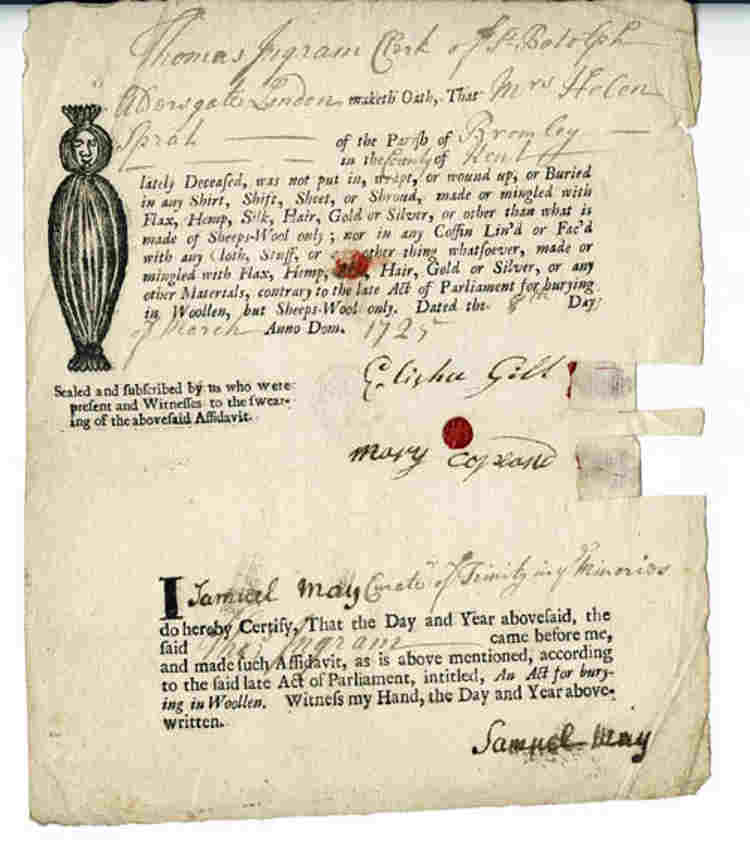 Thomas Ingram Clerk of St. Botolph
Aldersgate London maketh Oath, That Mrs Helen
Sprah of the Parish of Bromley
in the County of Kent
lately Deceased, was not put in, wrapt, or wound up, or Buried
in any Shirt, Shift, Sheet, or Shroud, made or mingled with
Flax, Hemp, Silk, Hair, Gold or Silver, or other than what is
made of Sheeps-Wool only; nor in any Coffin Lin'd or Fac'd
with any Cloth, Stuff, or other thing whatsoever, made or
mingled with Flax, Hemp, Hair, Gold or Silver, or any
other Materials, contrary to the late Act of Parliament for burying
in Woollen, but Sheeps-Wool only. Dated the 8th Day
of March Anno Dom. 1725
Sealed and subscribed by us who were
present and Witnesses to the swear-
ing of the abovesaid Affidavit.
Elisha Gill
Mary Copeand
I Samuel May Curate of Trinity in ye Minories
do hereby Certify, That the Day and Year abovesaid, the
said Thos Ingram came before me,
and made such Affidavit, as is above mentioned, according
to the said late Act of Parliament, intitled, An Act for bury-
ing in Woollen. Witness my Hand, the Day and Year above-
written.
Samuel May